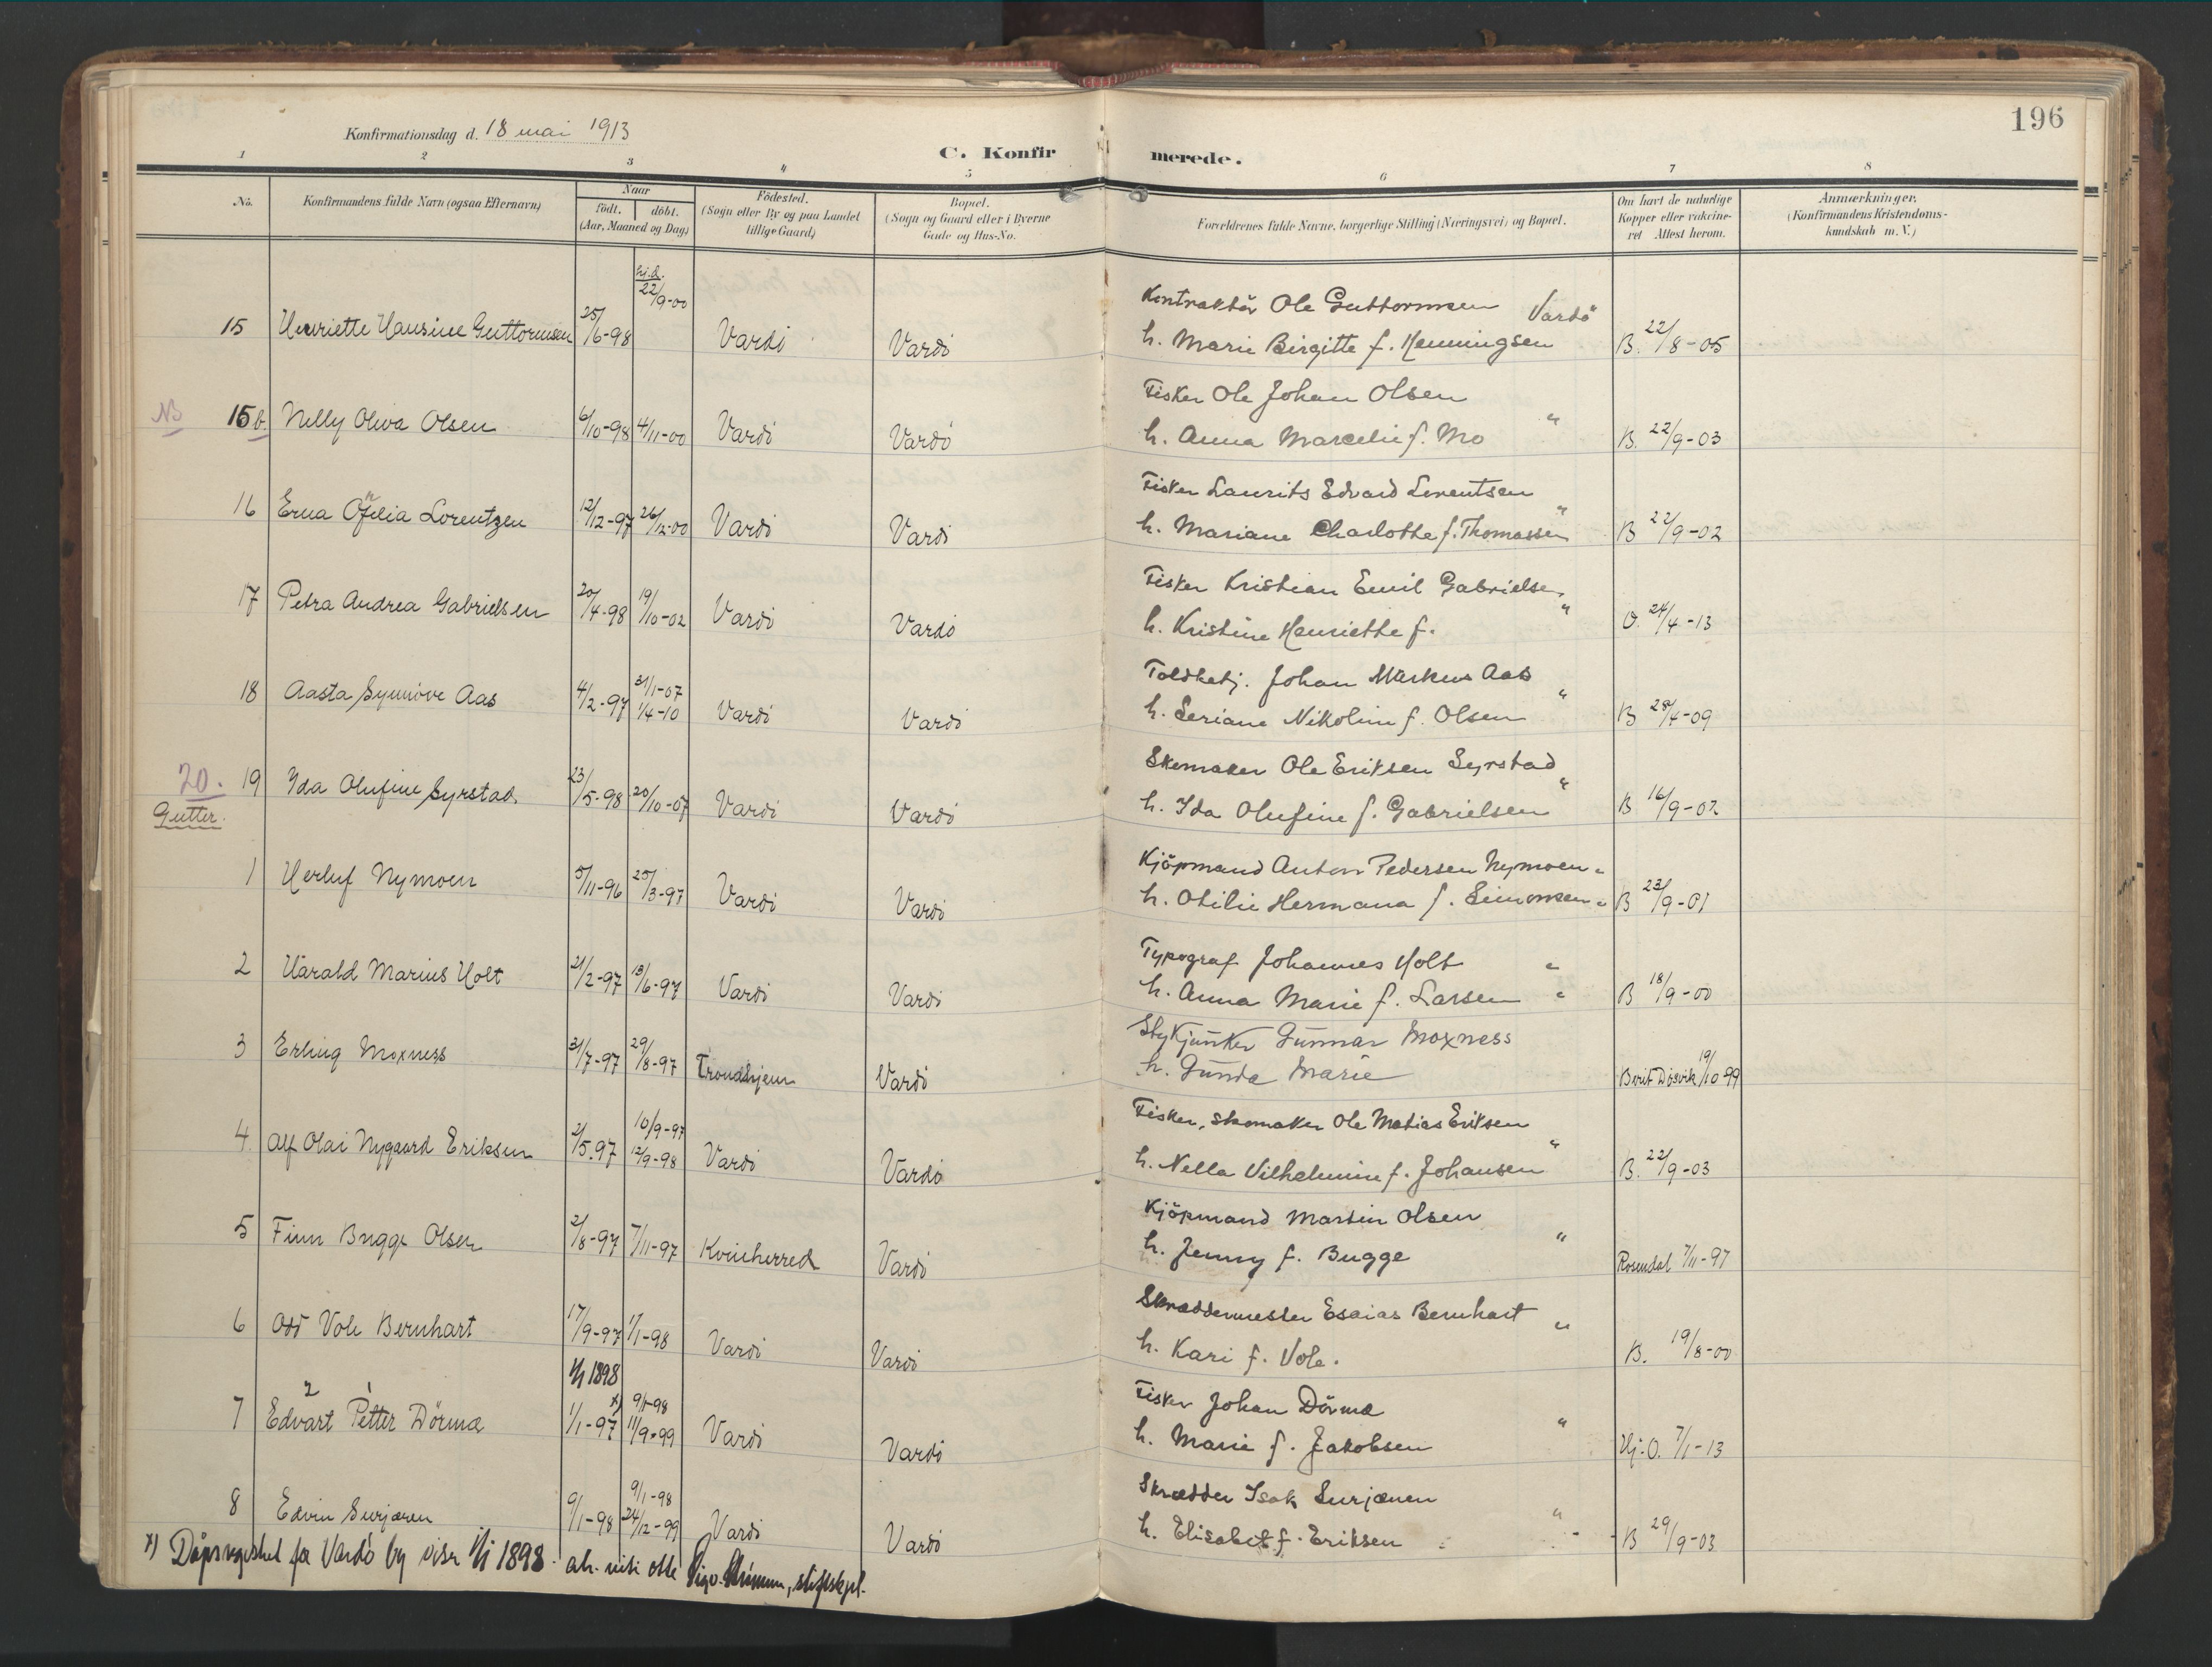 196
Konfirmationsdag d. 18 mai 1913
C. Konfirmerede.
1 2 3 4 5 6 7 8
No.
Konfirmandens fulde Navn (ogsaa Efternavn)
Naar
födt. döbt.
(Aar, Maaned og Dag)
Födested.
(Sogn eller By og paa Landet
tillige Gaard)
Bopæl.
(Sogn og Gaard eller i Byerne
Gade og Hus-No.
Forældrenes fulde Navne, borgerlige Stilling (Næringsvei) og Bopæl.
Om havt de naturlige
Kopper eller vakcine-
ret Attest herom.
Anmærkninger.
(Konfirmandens Kristendoms-
kundskab m. V.)
hj.d. 22/9-00
Kontraktör Ole Guttormsen Vardö
15 Henriette Hansine Guttormsen 25/6-98 Vardö Vardö h. Marie Birgitte f. Henningsen B. 22/8-05
Fisker Ole Johan Olsen
No 15 b. Nelly Oliva Olsen 6/10-98 4/11-00 Vardö Vardö h. Anna Marcelie f. Mo " B. 22/9-03
Fisker Laurits Edvard Lorentsen
16 Erna Ofelia Lorentzen 12/12-97 26/12-00 Vardö Vardö h. Mariane Charlotte f. Thomassen " B 22/9-02
Fisker Kristian Emil Gabrielsen
17 Petra Andrea Gabrielsen 20/4-98 19/10-02 Vardö Vardö h. Kristine Henriette f. " O. 24/4-13
31/1-07
Toldbetj. Johan Markus Aas
18 Aasta Synnöve Aas 4/2-97 1/4-10 Vardö Vardö h. Seriane Nikoline f. Olsen " B 28/4-09
Skomaker Ole Eriksen Syrstad
20. 19 Ida Olufine Syrstad. 23/5-98 20/10-07 Vardö Vardö h. Ida Olufine f. Gabrielsen " B 16/9-02
Gutter.
Kjöpmand Anton Pedersen Nymoen "
1 Herluf Nymoen 5/11-96 25/3-97 Vardö Vardö h. Otilie Hermana f. Simonsen " B 23/9-01
Typograf Johannes Holt "
2 Harald Marius Holt 21/2-97 13/6-97 Vardö Vardö h. Anna Marie f. Larsen " B 18/9-00
Stykjunker Gunnar Moxness
3 Erling Moxness 31/7-97 29/8-97 Trondhjem Vardö h. Gunda Marie Berit Dösvik 19/10 99
10/9-97
Fisker, skomaker Ole Matias Eriksen
4 Alf Olai Nygaard Eriksen 2/5.97 12/9-98 Vardö Vardö h. Nella Vilhelmine f. Johansen " B. 22/9-03
Kjöpmand Martin Olsen
5 Finn Bugge Olsen 2/8-97 7/11-97 Kvinherred Vardö h. Jenny f. Bugge " Rosendal 7/11-97
Skræddermester Esaias Bernhart "
6 Odd Vole Bernhart 17/9-97 1/1-98 Vardö Vardö h. Kari f. Vole. B. 19/8-00
1/1 1898
x) 9/1-98
Fisker Johan Dörmæ
7 Edvart 2 Petter 1 Dörmæ 1/1-97 11/9-99 Vardö Vardö h. Marie f. Jakobsen " Hj.O. 7/1-13
9/1-98
Skrædder Isak Surjænen
8 Edvin Surjænen 9/1-98 24/12-99 Vardö Vardö h. Elisabet f. Eriksen " B 29/9-03
x) Dåpsregistret for Vardö by viser 1/1 1898